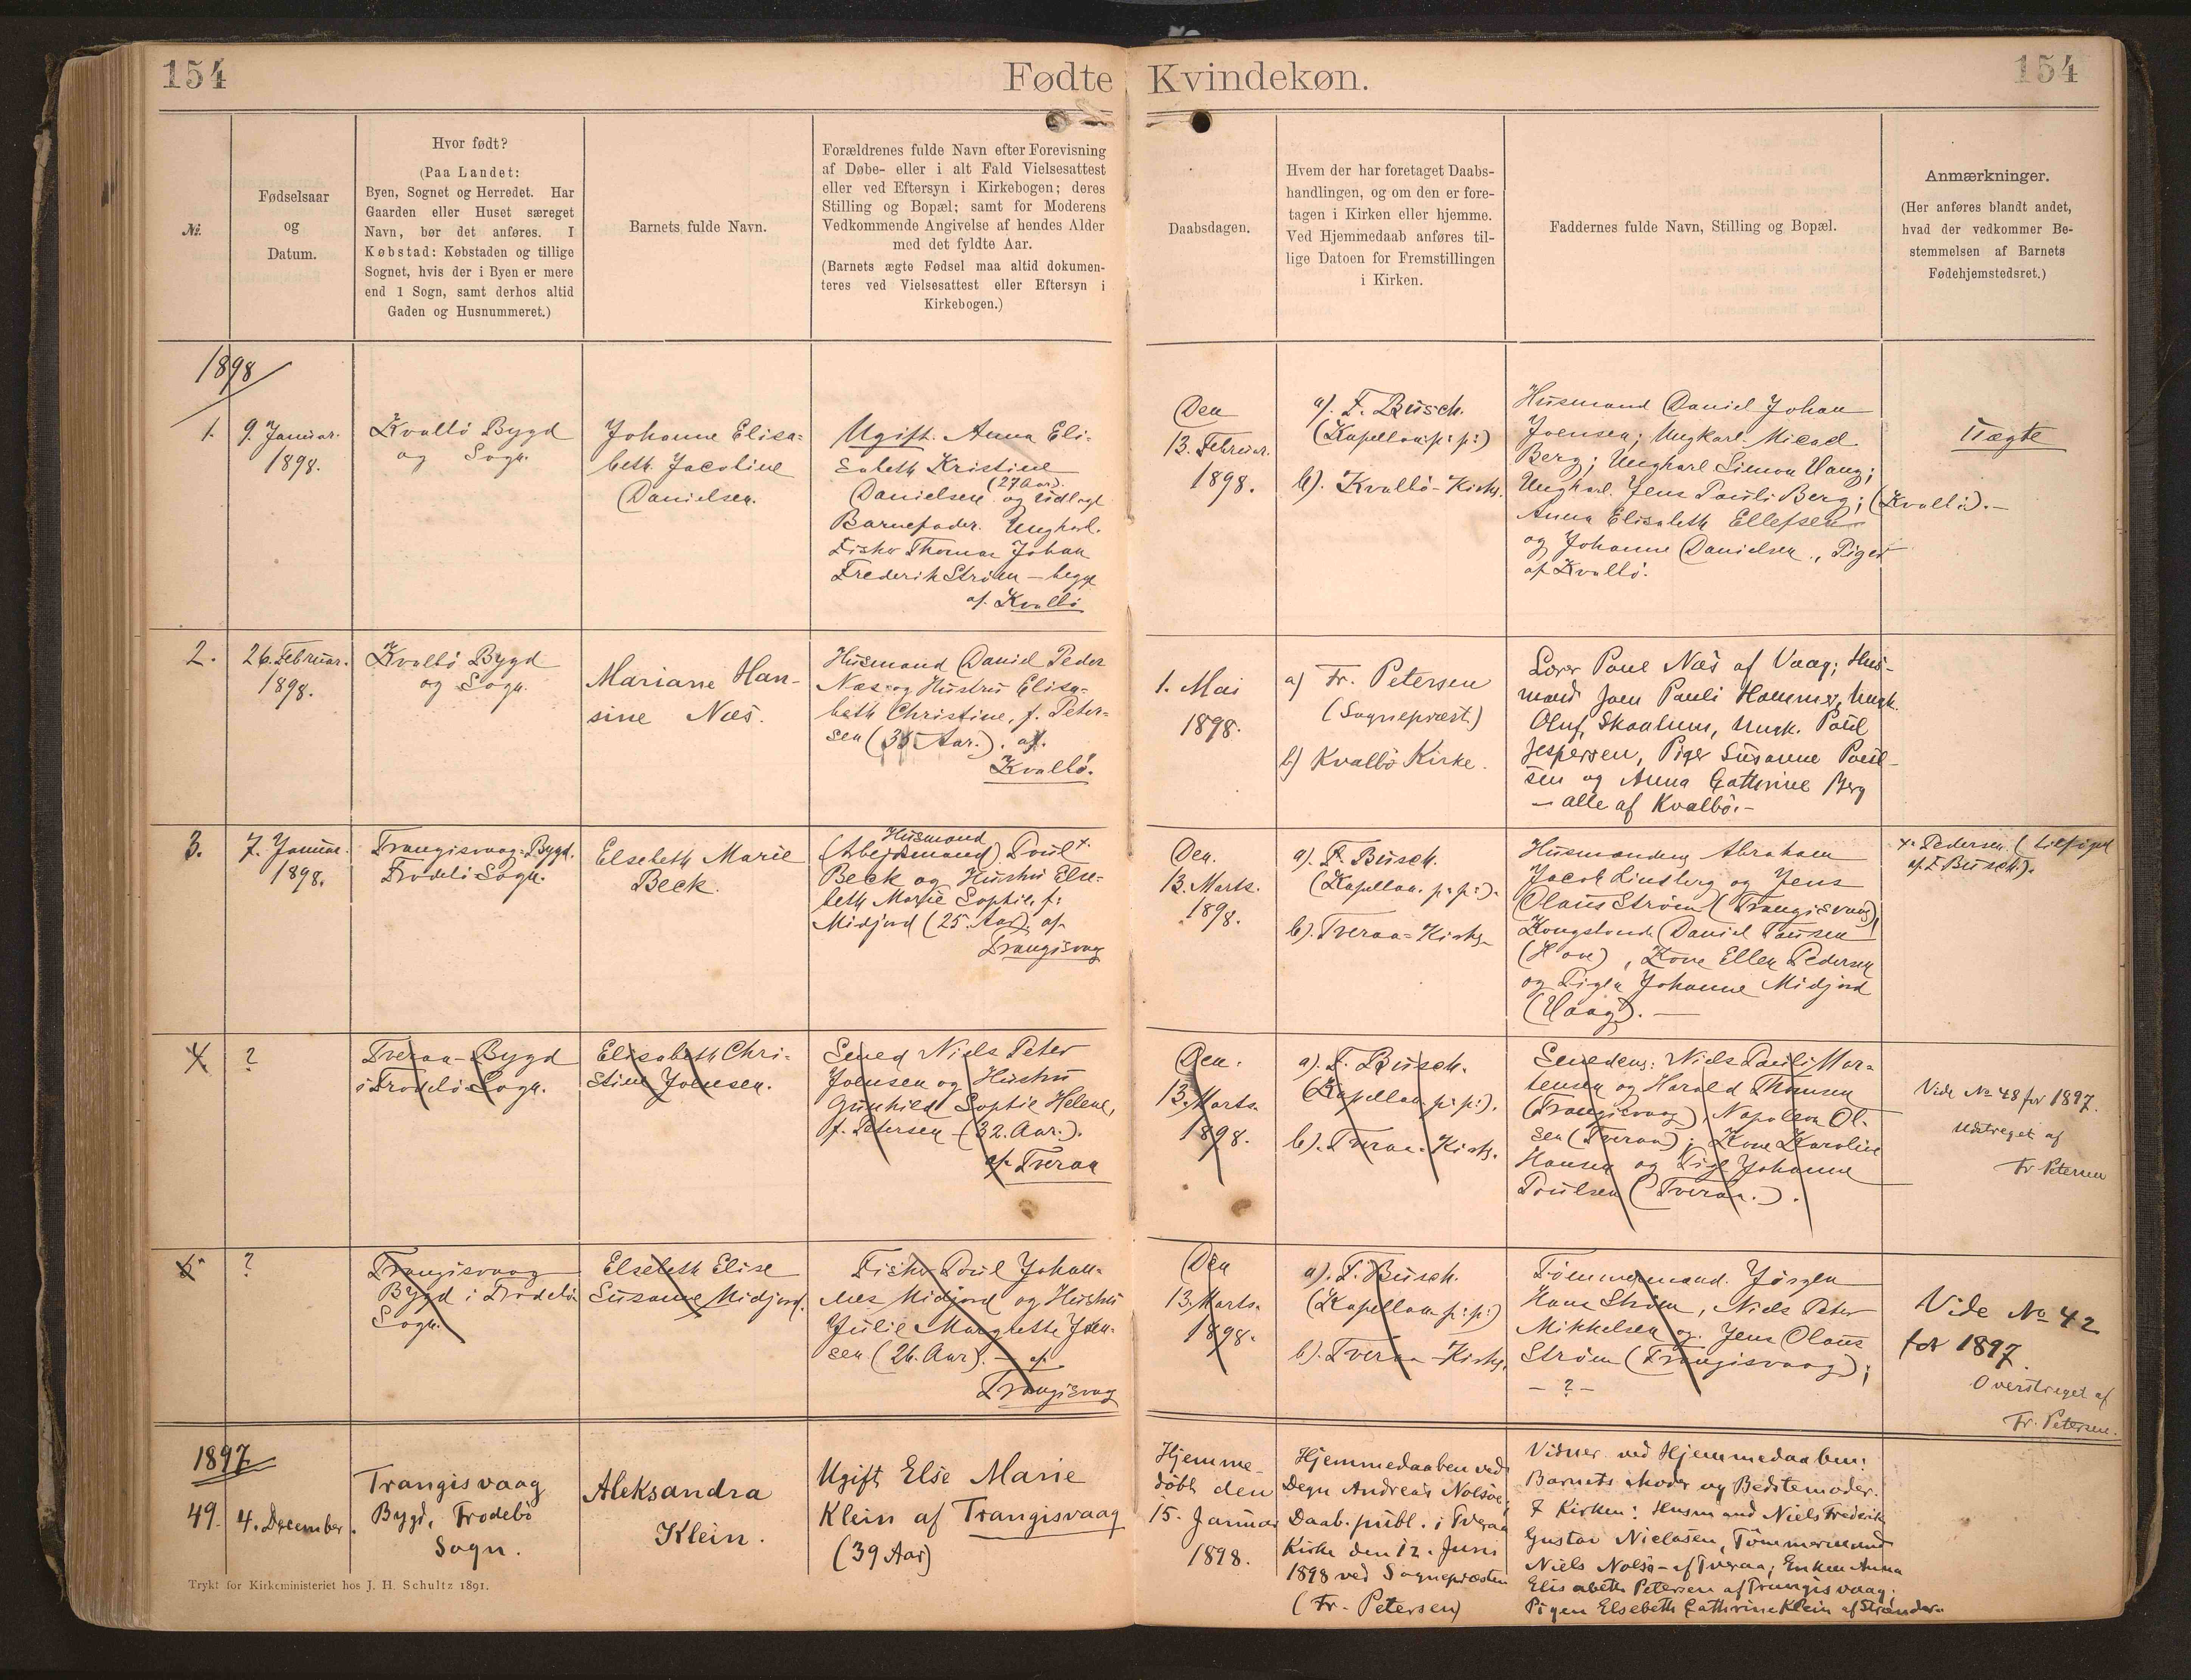 154
Fødte Kvindekøn.
154
№.
Fødselsaar
og
Datum.
Hvor født?
(Paa Landet:
Byen, Sognet og Herredet. Har
Gaarden eller Huset særeget
Navn, bør det anføres. I
Købstad: Købstaden og tillige
Sognet, hvis der i Byen er mere
end 1 Sogn, samt derhos altid
Gaden og Husnummeret.)
Barnets fulde Navn.
Forældrenes fulde Navn efter Forevisning
af Døbe- eller i alt Fald Vielsesattest
eller ved Eftersyn i Kirkebogen; deres
Stilling og Bopæl; samt for Moderens
Vedkommende Angivelse af hendes Alder
med det fyldte Aar.
(Barnets ægte Fødsel maa altid dokumen-
teres ved Vielsesattest eller Eftersyn i
Kirkebogen.)
Daabsdagen.
Hvem der har foretaget Daabs-
handlingen, og om den er fore-
tagen i Kirken eller hjemme.
Ved Hjemmedaab anføres til-
lige Datoen for Fremstillingen
i Kirken.
Faddernes fulde Navn, Stilling og Bopæl.
Anmærkninger.
(Her anføres blandt andet,
hvad der vedkommer Be-
stemmelsen af Barnets
Fødehjemstedsret.)
1898
1.
9. Januar.
1898.
Kvalbö Bygd
og Sogn.
Johanne Elisa-
beth Jacobine
Danielsen.
Ugift. Anna Eli-
sabeth Kristine
(27 Aar).
Danielsen og udlagt
Barnefader. Ungkarl.
Fisker Thomas Johan
Frederik Ström - begge
af. Kvalbö
Den
13. Februar.
1898.
a). F. Busch.
(Kapellan p: p:)
b). Kvalbö-Kirke.
Husmand Daniel Johan
Joensen; Ungkarl. Micael
Berg; Ungkarl Simon Vang;
Ungkarl. Jens Pauli Berg; (Kvalbö).-
Anna Elisabeth Ellefsen
og Johanne Danielsen., Piger
af Kvalbö.
Uægte
2.
26. Februar.
1898.
Kvalbö Bygd
og Sogn.
Mariane Han-
sine Næs.
Husmand Daniel Peder
Næs og Hustru Elisa-
beth Christine, f. Peter-
sen (35 Aar.). af.
Kvalbö.
1. Mai
1898.
a) Fr. Petersen
(Sognepræst.)
b) Kvalbö Kirke.
Lærer Poul Næs af Vaag; Hus-
mand Joen Pauli Hammer, Ungk.
Oluf Skaalum, Ungk. Poul
Jespersen, Piger Susanne Poul-
sen og Anna Cathrine Berg
- alle af Kvalbö.-
3.
7. Januar.
1898.
Trangisvaag-Bygd.
Frodebö Sogn.
Elsebeth Marie
Beck.
Husmand
(Arbejdsmand). Poul x
Beck og Hustru Else-
beth Marie Sophie f:
Midjord (25. Aar). af
Trangisvaag
Den.
13. Marts.
1898.
a). F. Busch.
(Kapellan. p: p:).
b). Tveraa-Kirke
Husmændene Abraham
Jacob Lindberg og Jens
Olaus Ström (Trangisvaag),
Kongsbonde Daniel Poulsen
(Hove), Kone Ellen Pedersen
og Pigen Johanne Midjord
(Vaag). -
x. Pedersen (tilføjet
af F. Busch).
4.
?
Tveraa-Bygd
i Frodebö Sogn.
Elisabeth Chri-
stine Joensen.
Smed Niels Peter
Joensen og Hustru
Gunhild Sophie Helene,
f. Petersen (32. Aar.).
af Tveraa
Den.
13. Marts.
1898.
a). F. Busch.
(Kapellan p: p:).
b). Tveraa-Kirke.
Smedene: Niels Pauli Mor-
tensen og Harald Thomsen
(Trangisvaag), Napoleon Ol-
sen (Tveraa); Kone Karoline
Hansen og Pige Johanne
Poulsen (Tveraa.).
Vide No 48 for 1897.
Udstreget af
Fr. Petersen
5.
?
Trangisvaag
Bygd i Frodebö
Sogn.
Elsebeth Elise
Susanne Midjord.
Fisker Poul Johan-
nes Midjord og Hustru
Julie Margrethe Joen-
sen (26. Aar). - af
Trangisvaag
Den
13. Marts.
1898.
a). F. Busch.
(Kapellan p: p:)
b). Tveraa-Kirke.
Tömmermand. Jørgen
Hans Ström, Niels Peter
Mikkelsen og Jens Olaus
Ström (Trangisvaag);
- ? -
Vide No 42
for 1897.
Overstreget af
Fr. Petersen.
1897
49.
4. December.
Trangisvaag
Bygd, Frodebö
Sogn.
Aleksandra
Klein.
Ugift Else Marie
Klein af Trangisvaag
(39 Aar)
Hjemme-
döbt den
15. Januar
1898.
Hjemmedaaben ved
Degn Andreas Nolsöe;
Daab. publ. i Tveraa
Kirke den 12. Juni
1898 ved Sognepræsten
(Fr. Petersen)
Vidner ved Hjemmedaaben:
Barnets Moder og Bedstemoder.
I Kirken: Husmand Niels Frederik
Gustav Nielasen, Tömmermand
Niels Nolsö - af Tveraa; Enken Anna
Elisabeth Petersen af Trangisvaag;
Pigen Elsebeth Cathrine Klein af Strænder-
Trykt for Kirkeministeriet hos J. H. Schultz 1891.